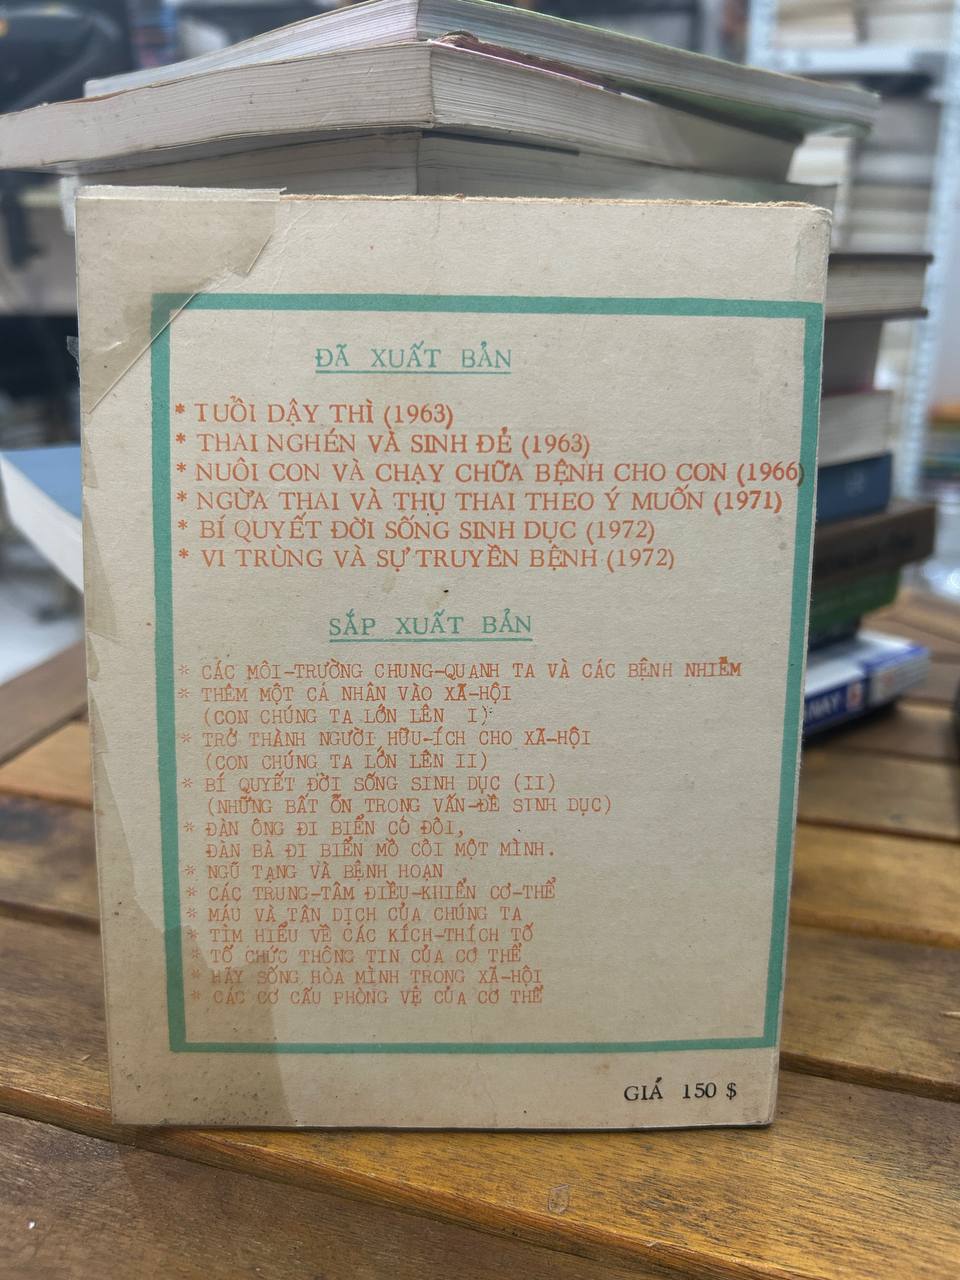 ĐÃ XUẤT BẢN
* TUỔI DẬY THÌ (1963)
* THAI NGHÉN VÀ SINH ĐẺ (1963)
* NUÔI CON VÀ CHẠY CHỮA BỆNH CHO CON (1966)
* NGỪA THAI VÀ THỤ THAI THEO Ý MUỐN (1971)
* BÍ QUYẾT ĐỜI SỐNG SINH DỤC (1972)
* VI TRÙNG VÀ SỰ TRUYỀN BỆNH (1972)
SẮP XUẤT BẢN
* CÁC MÔI-TRƯỜNG CHUNG-QUANH TA VÀ CÁC BỆNH NHIỄM
* THÊM MỘT CÁ NHÂN VÀO XÃ-HỘI
(CON CHÚNG TA LỚN LÊN I)
* TRỞ THÀNH NGƯỜI HỮU-ÍCH CHO XÃ-HỘI
(CON CHÚNG TA LỚN LÊN II)
* BÍ QUYẾT ĐỜI SỐNG SINH DỤC (II)
(NHỮNG BẤT ỔN TRONG VẤN-ĐỀ SINH DỤC)
* ĐÀN ÔNG ĐI BIỂN CÓ ĐÔI,
ĐÀN BÀ ĐI BIỂN MỒ CÔI MỘT MÌNH.
* NGŨ TẠNG VÀ BỆNH HOẠN
* CÁC TRUNG-TÂM ĐIỀU-KHIỂN CƠ-THỂ
* MÁU VÀ TÂN DỊCH CỦA CHÚNG TA
* TÌM HIỂU VỀ CÁC KÍCH-THÍCH TỐ
* TỔ CHỨC THÔNG TIN CỦA CƠ THỂ
* HÃY SỐNG HÒA MÌNH TRONG XÃ-HỘI
* CÁC CƠ CẤU PHÒNG VỆ CỦA CƠ THỂ
GIÁ 150 $
NAY